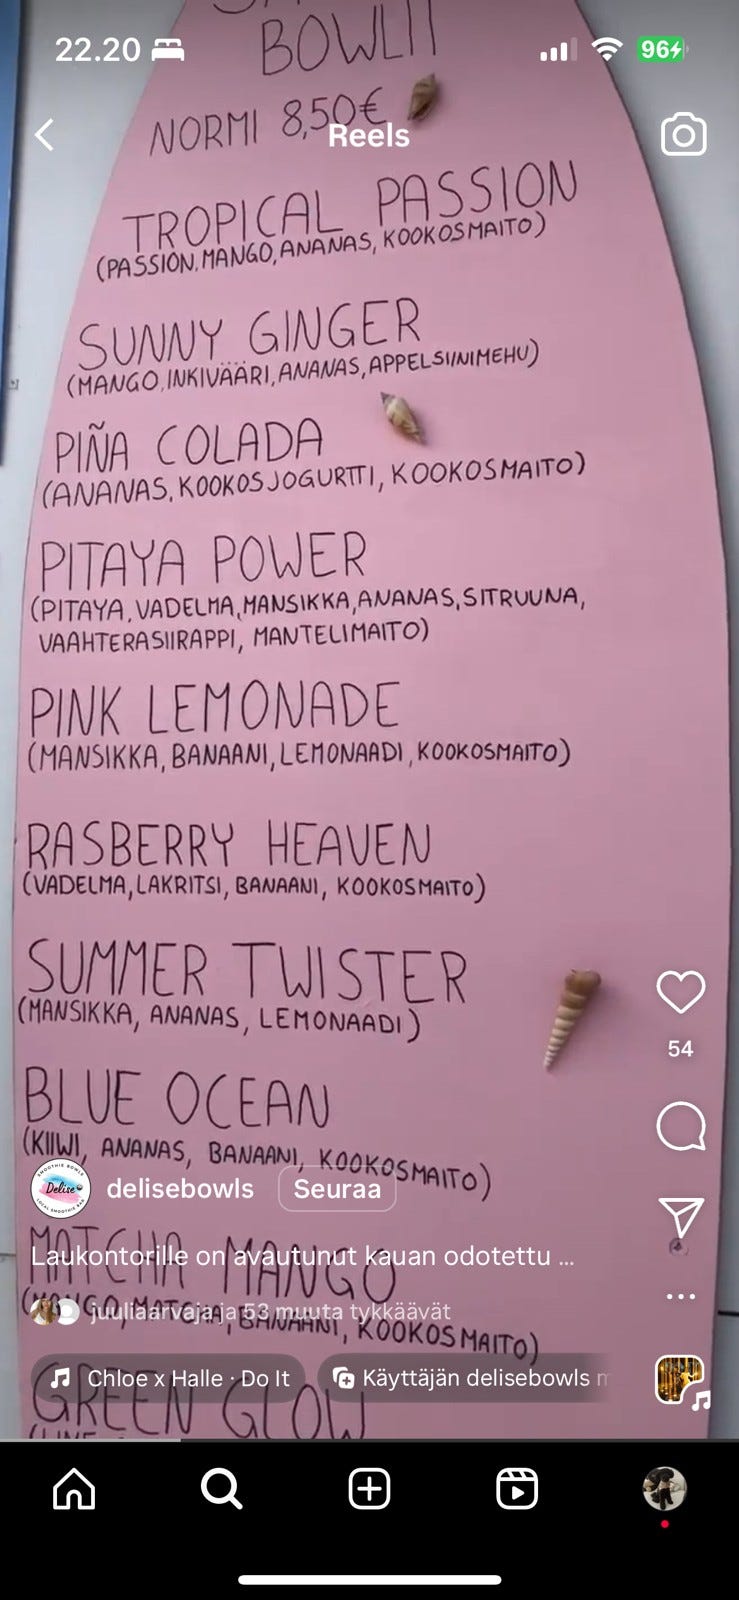 BOWLIT
22.20
96
NORMI 8,50€
Reels
TROPICAL PASSION
(PASSION, MANGO, ANANAS, KOOKOSMAITO)
SUNNY GINGER
(MANGO, INKIVÄÄRI, ANANAS, APPELSIINIMEHU)
PIÑA COLADA
(ANANAS, KOOKOSJOGURTTI, KOOKOSMAITO)
PITAYA POWER
(PITAYA, VADELMA, MANSIKKA, ANANAS, SITRUUNA,
VAAHTERASIIRAPPI, MANTELIMAITO)
PINK LEMONADE
(MANSIKKA, BANAANI, LEMONAADI, KOOKOSMAITO)
RASBERRY HEAVEN
(VADELMA, LAKRITSI, BANAANI, KOOKOSMAITO)
SUMMER TWISTER
(MANSIKKA, ANANAS, LEMONAADI)
54
BLUE OCEAN
(KIIWI, ANANAS, BANAANI, KOOKOSMAITO)
SMOOTHIE BOWLS
Delise
LOCAL SMOOTHIE BAR
delisebowls
Seuraa
MATCHA MANGO
Laukontorille on avautunut kauan odotettu ...
(MANGO, MATCHA, BANAANI, KOOKOSMAITO)
juuliaarvaja ja 53 muuta tykkäävät
Chloe x Halle · Do It
Käyttäjän delisebowls
GREEN GLOW